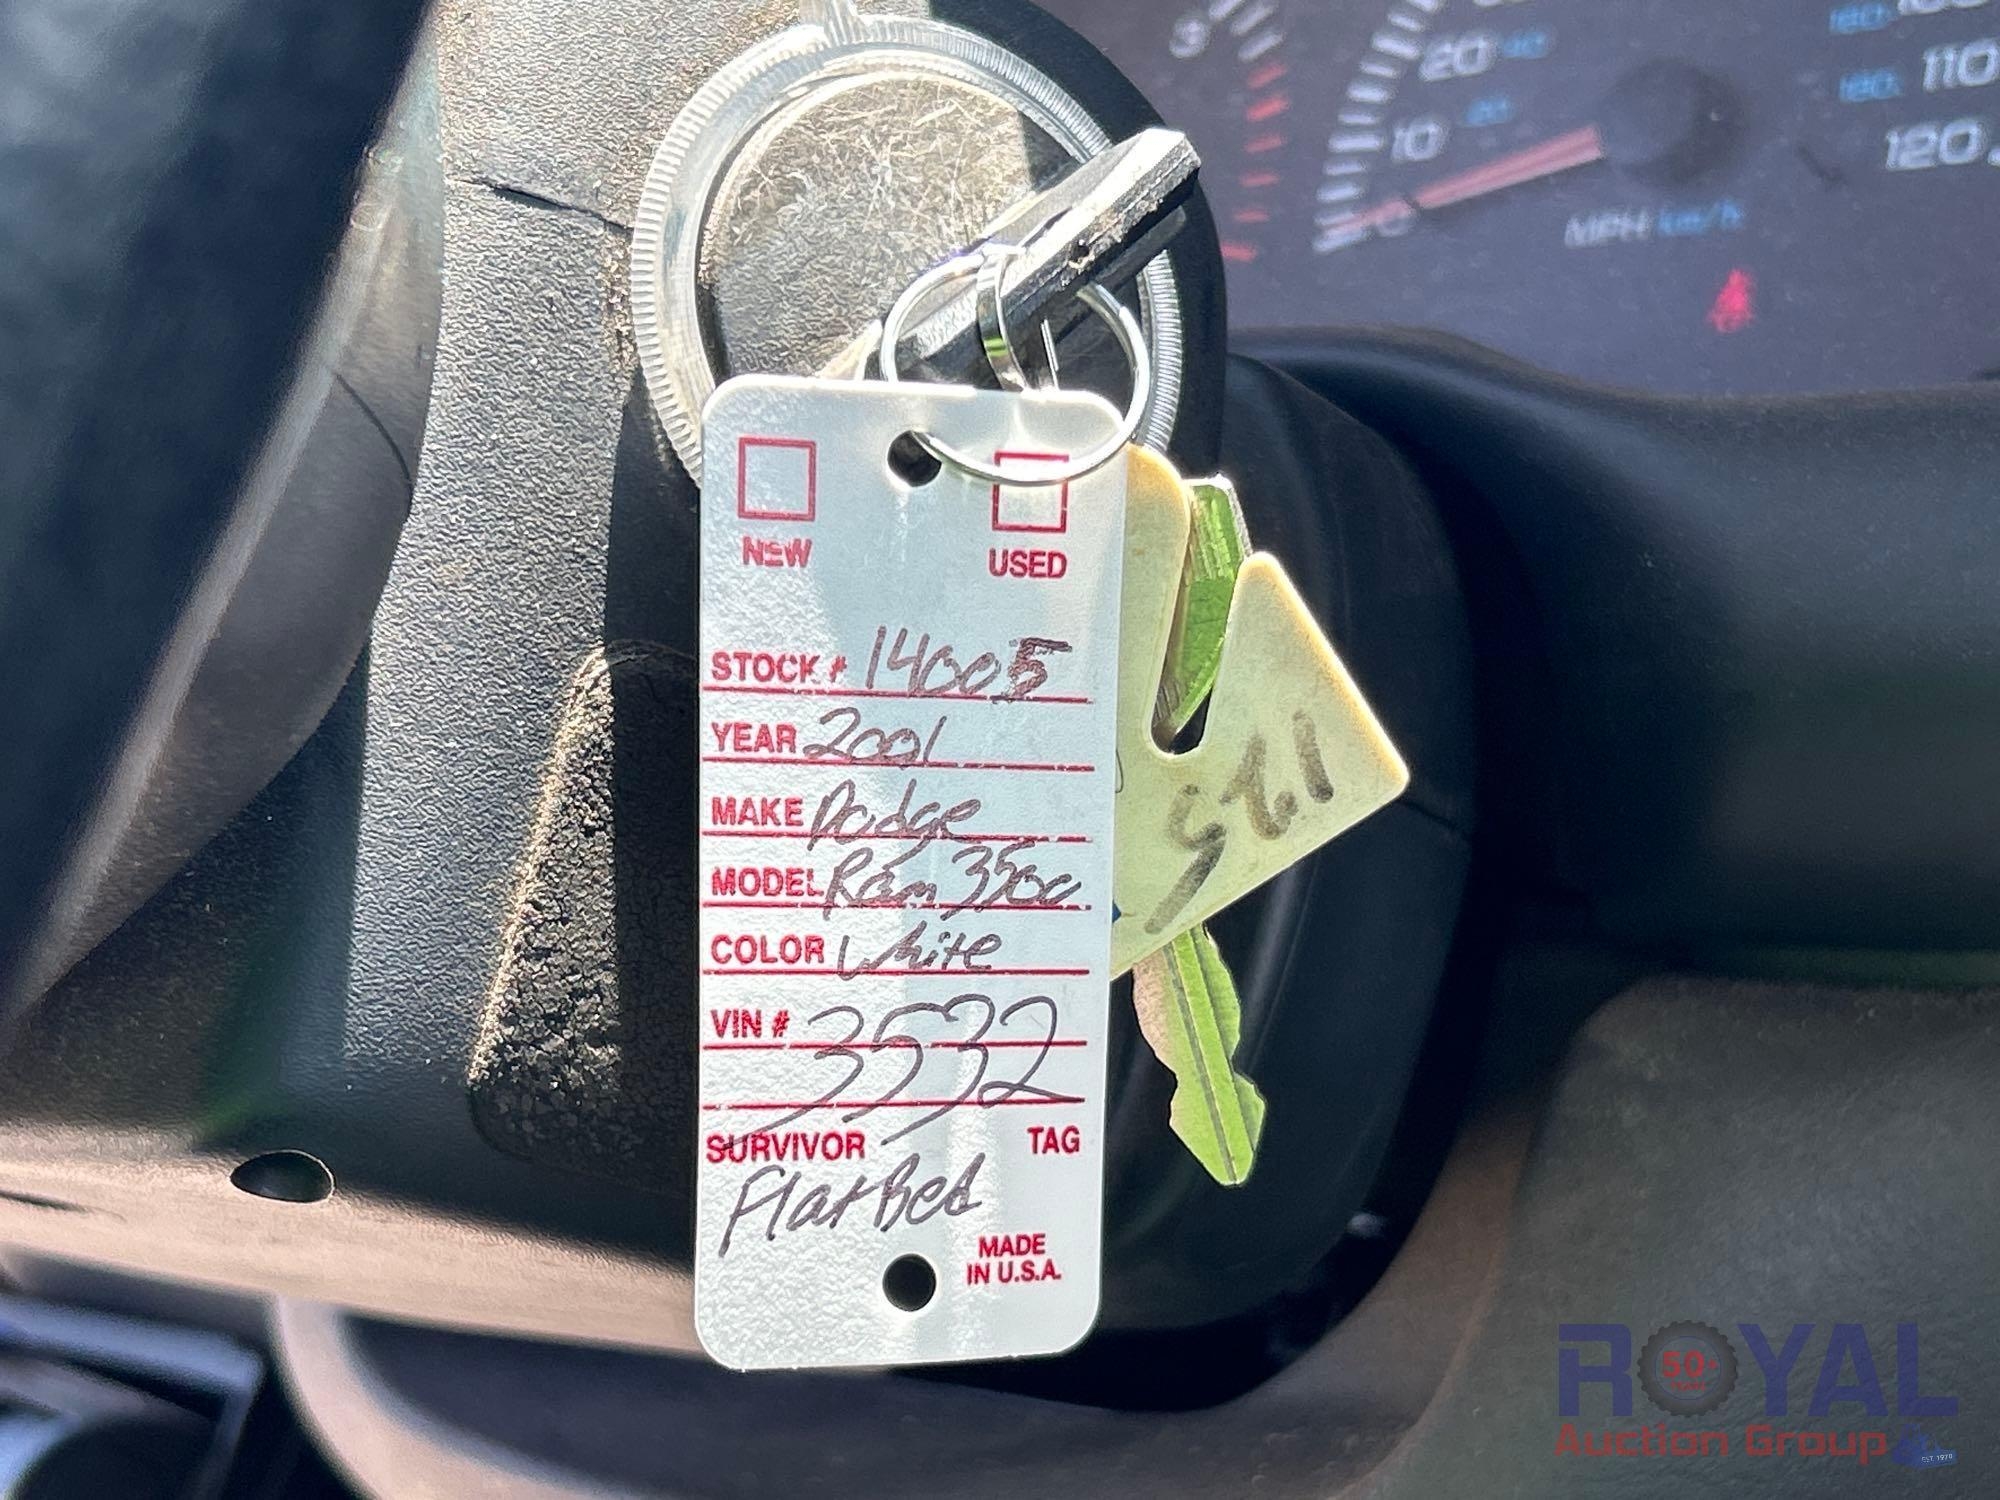 20 40
10 20
0
160 100
180 110
120
MPH km/h
NEW USED
STOCK # 14005
YEAR 2001
MAKE Dodge
MODEL Ram 3500
COLOR White
VIN # 3532
SURVIVOR TAG
FlatBed
MADE
IN U.S.A.
125
ROYAL
50+
YEARS
Auction Group
EST. 1970